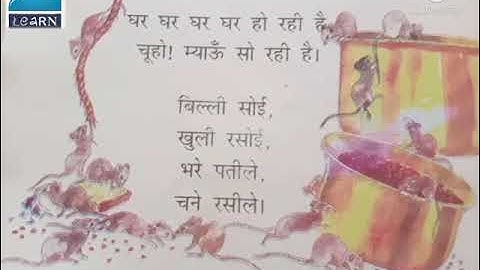 LEARN
घर घर घर घर हो रही है
चूहो! म्याऊँ सो रही है।
बिल्ली सोई,
खुली रसोई,
भरे पतीले,
चने रसीले।